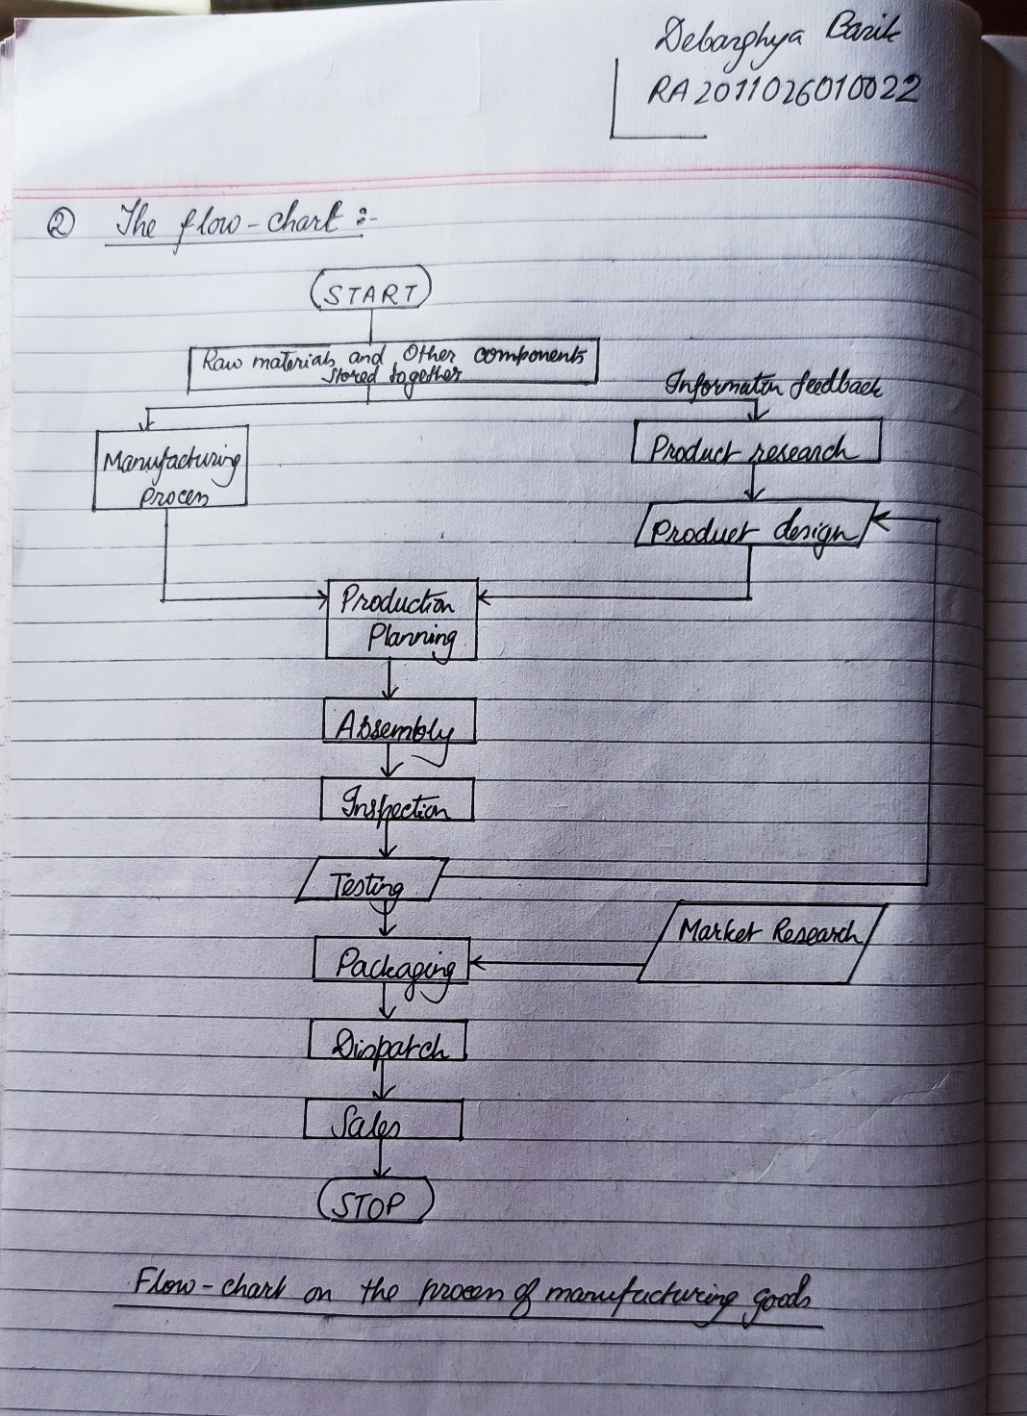 Debarghya Barik
RA2011026010022
② The flow-chart :-
START
Raw materials and Other components
stored together
Information feedback
Manufacturing
Process
Product research
Product design
Production
Planning
Assembly
Inspection
Testing
Market Research
Packaging
Dispatch
Sales
STOP
Flow-chart on the process of manufacturing goods